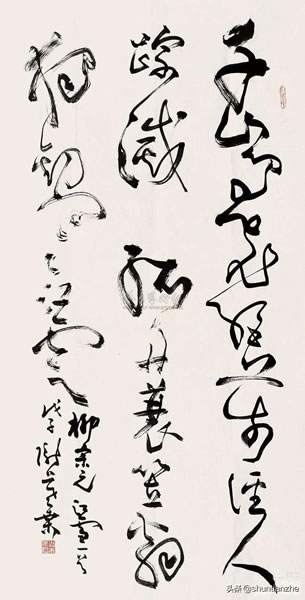 千山鸟飞绝万径人
踪滅孤舟蓑笠翁
独钓寒江雪
柳宗元江雪一首
戊子
头条 @shuntianzhe